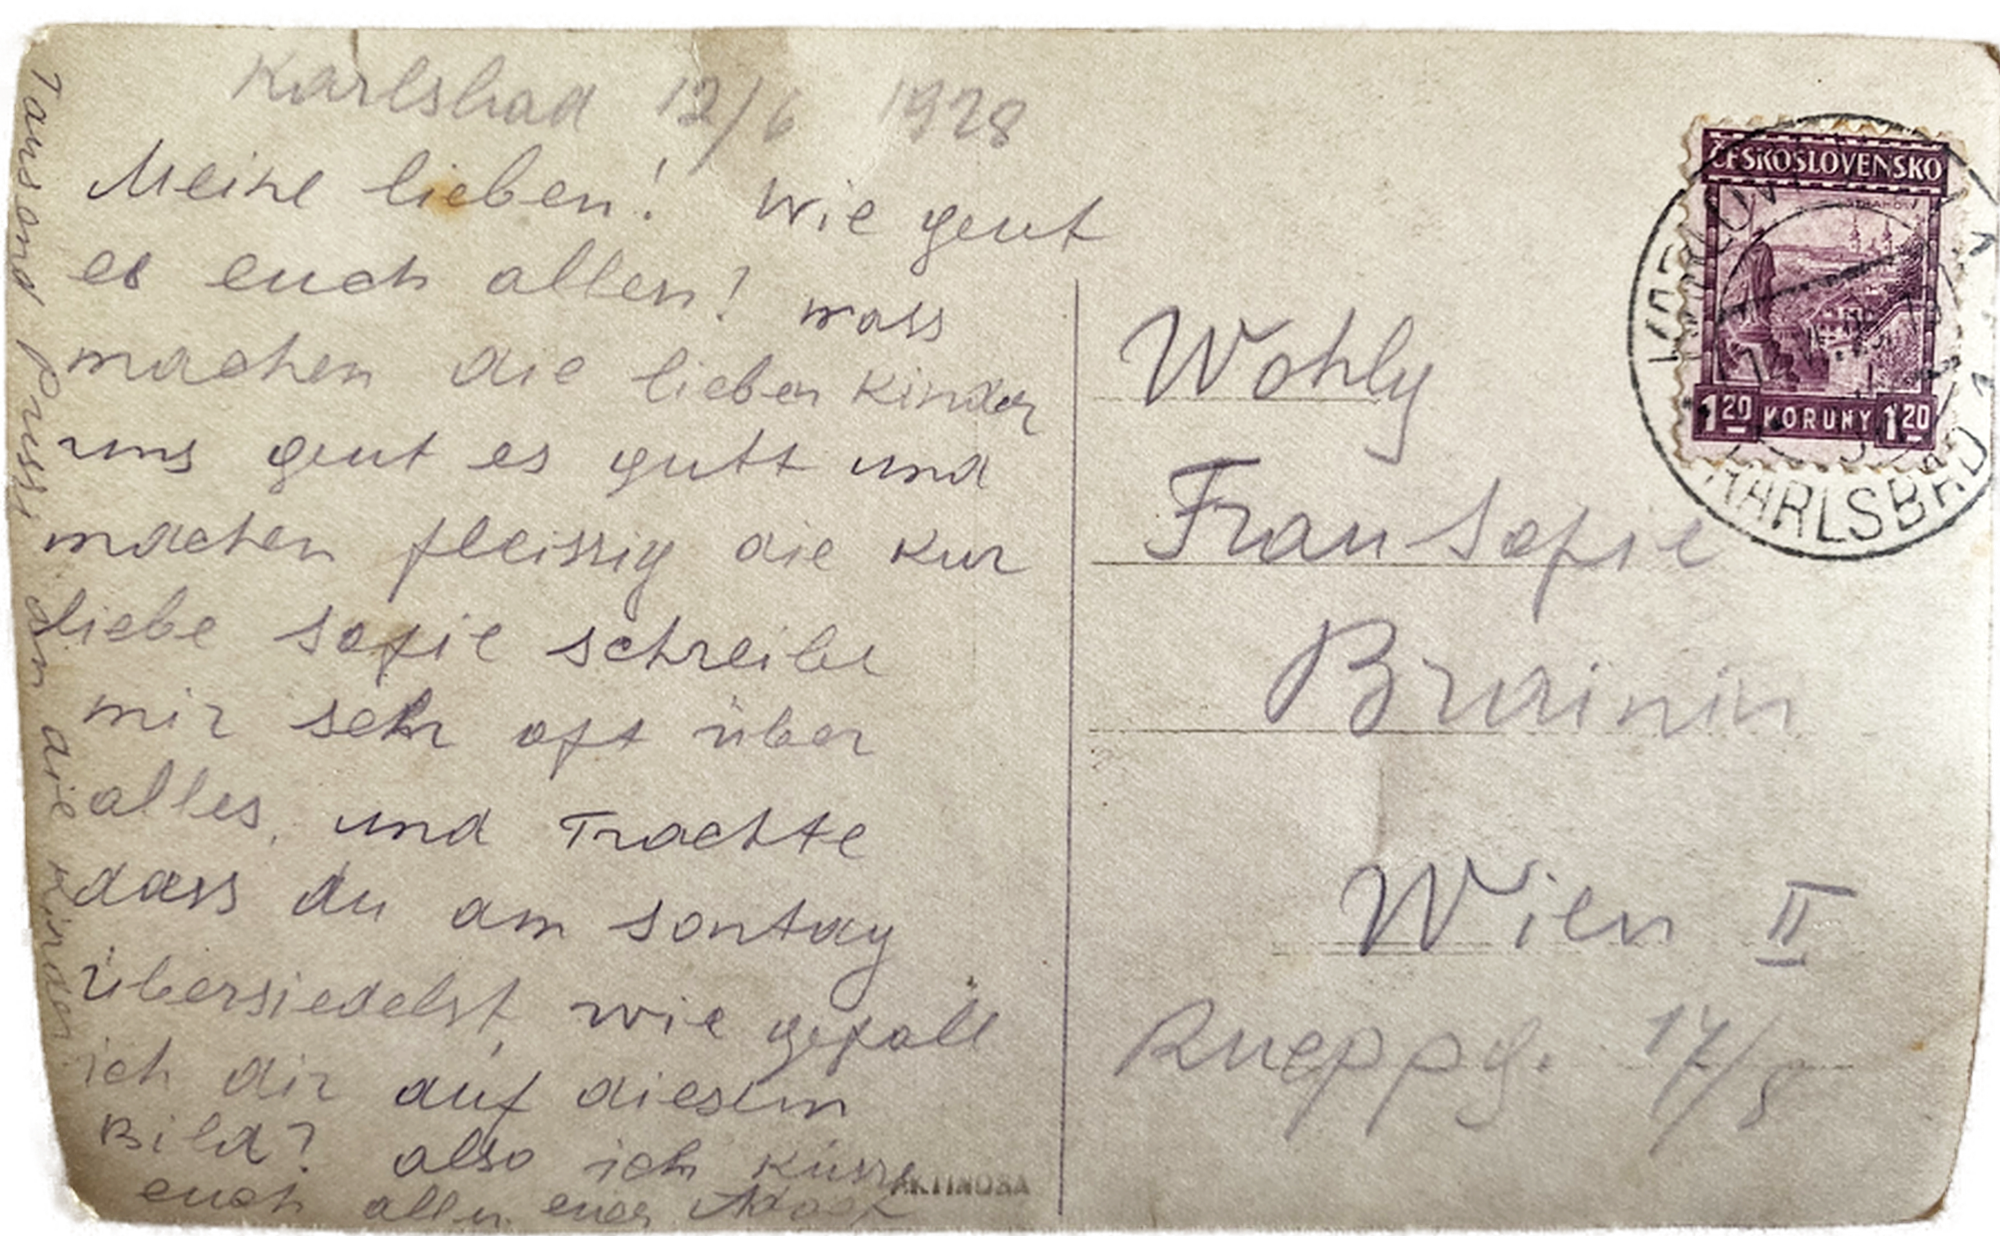 Karlsbad 12/6 1928
Meine lieben! Wie geut
es euch allen? wass
machen die lieben Kinder
uns geut es gutt und
machen fleissig die Kur
liebe Sofie schreibe
mir sehr oft über
alles, und Trachte
dass du am sontag
übersiedelst, wie gefall
ich dir auf diesem
Bild? also ich küsse
euch allen euer
Tausend Pussi an die Kinder
ČESKOSLOVENSKO
STRAHOV
1 20 KORUNY 1 20
KARLOVY
KARLSBAD
Wohlg
Frau Sofie
Brainin
Wien II
Rueppg. 17/8
AKTINOSA